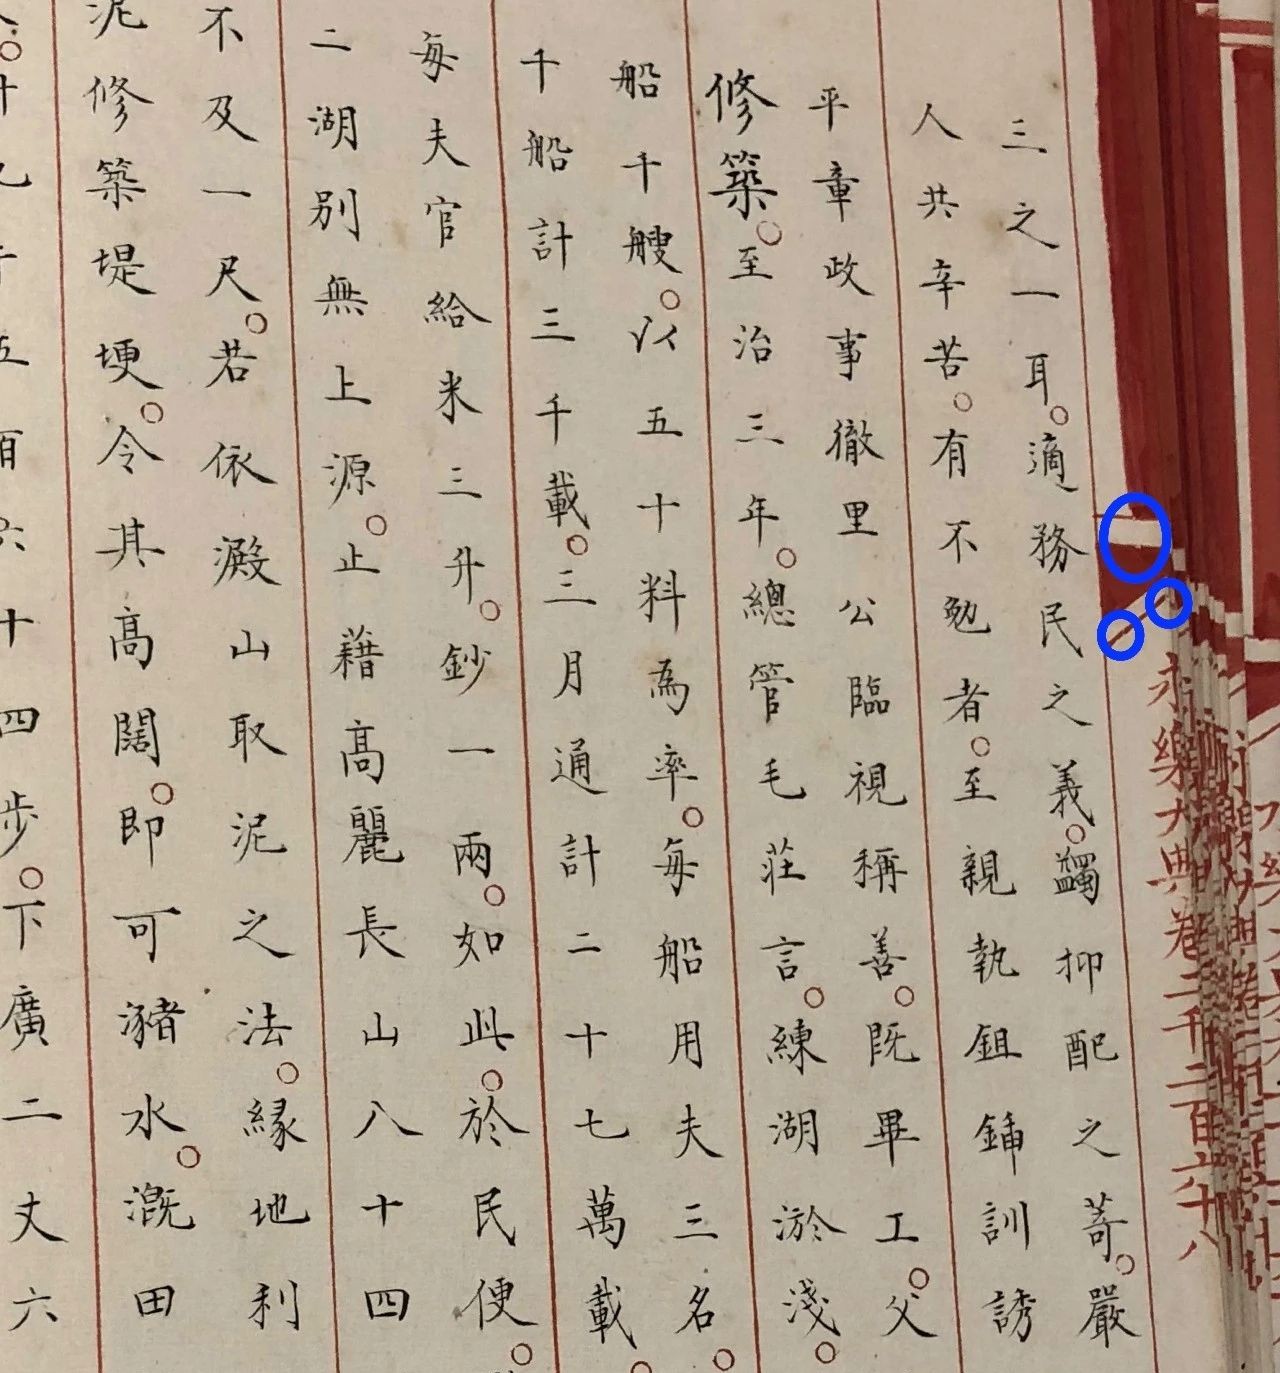 永樂大典卷二千二百六十八
三之一耳。適務民之義。蠲抑配之苛。嚴
人共辛苦。有不勉者。至親執鉏鍤訓誘
平章政事徹里公臨視稱善。既畢工。父
修築。至治三年。總管毛莊言。練湖淤淺。
船千艘。以五十料為率。每船用夫三名。
千船計三千載。三月通計二十七萬載。
每夫官給米三升。鈔一兩。如此。於民便。
二湖別無上源。止藉高麗長山八十四
不及一尺。若依澱山取泥之法。緣地利
泥修築堤埂。令其高闊。即可豬水。溉田
五百六十四步。下廣二丈六